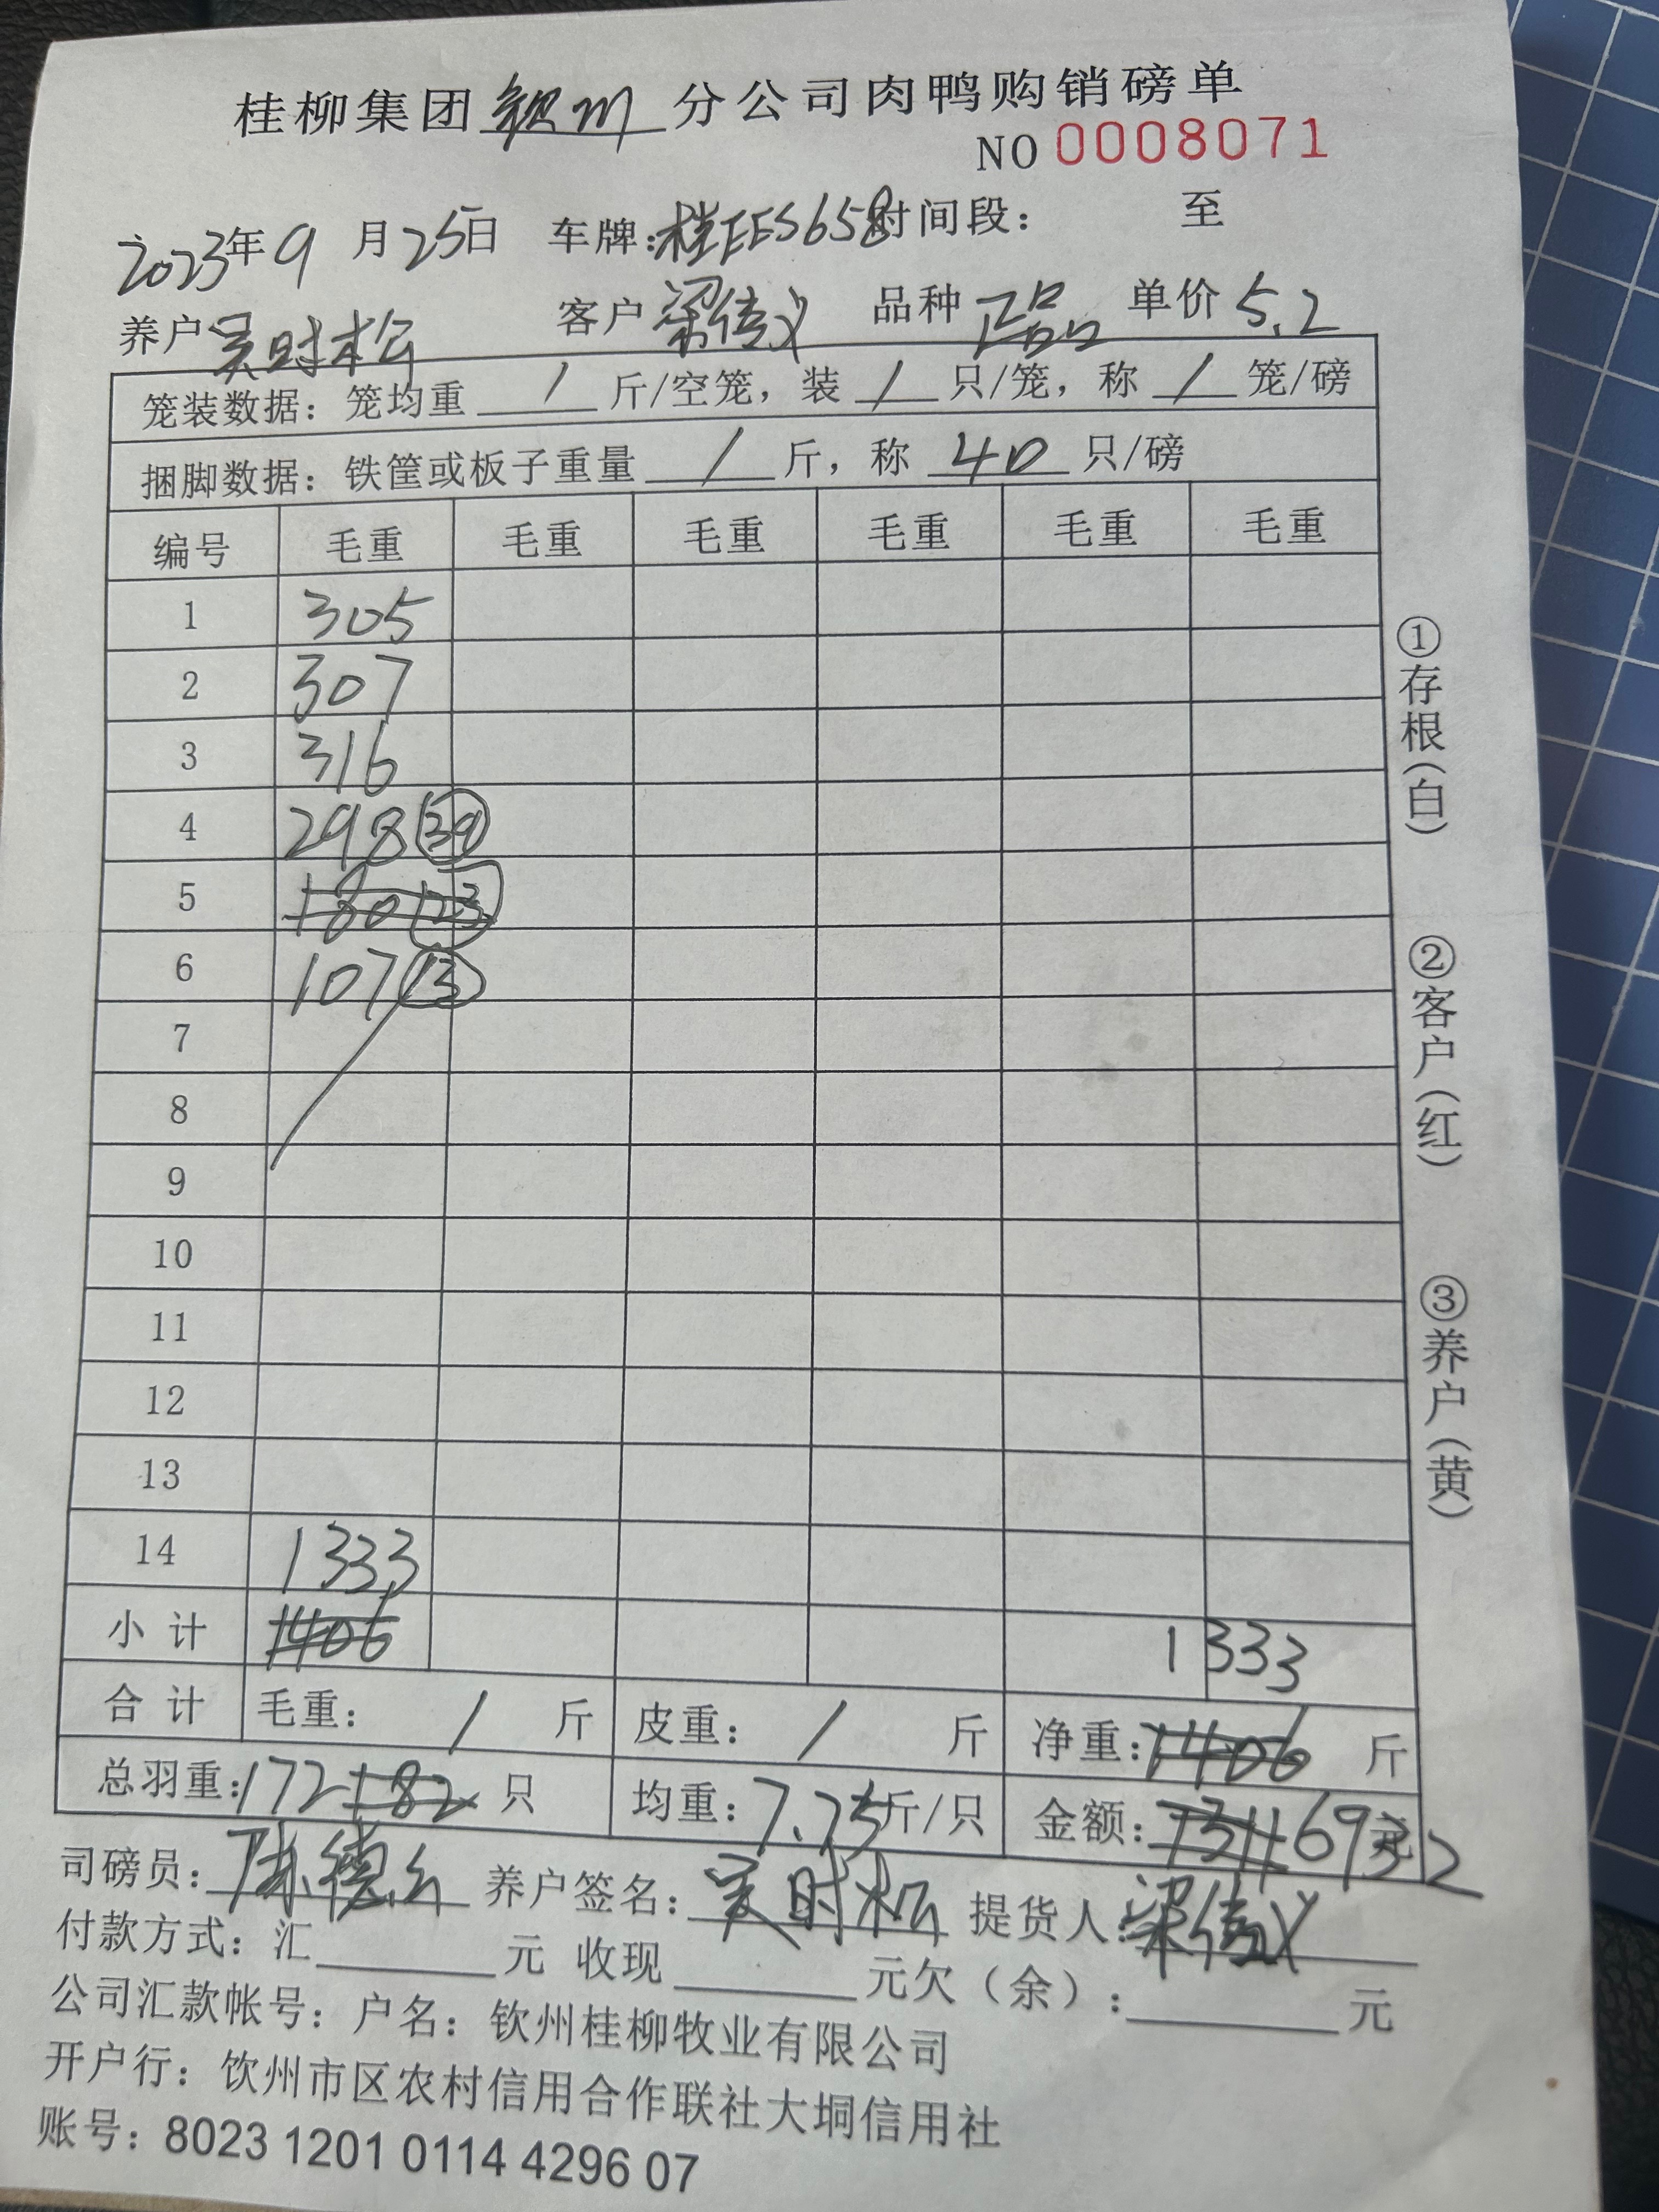 桂柳集团钦州分公司肉鸭购销磅单
NO 0008071
2023年9月25日 车牌:桂EES658时间段: 至
养户吴时松 客户梁信义 品种正品 单价5.2
笼装数据: 笼均重 / 斤/空笼, 装 / 只/笼, 称 / 笼/磅
捆脚数据: 铁筐或板子重量 / 斤, 称 40 只/磅
编号 毛重 毛重 毛重 毛重 毛重 毛重
1 305
2 307
3 316
4 298 39
5 180 23
6 107 13
7
8
9
10
11
12
13
14 1333
小计 1406 1333
合计 毛重: / 斤 皮重: / 斤 净重:1406 斤
总羽重:172 182 只 均重:7.75斤/只 金额:7311 6932元
司磅员: 养户签名:吴时松 提货人:梁信义
付款方式: 汇 元 收现 元欠(余): 元
公司汇款帐号: 户名: 钦州桂柳牧业有限公司
开户行: 饮州市区农村信用合作联社大垌信用社
账号: 8023 1201 0114 4296 07
①存根(白)
②客户(红)
③养户(黄)